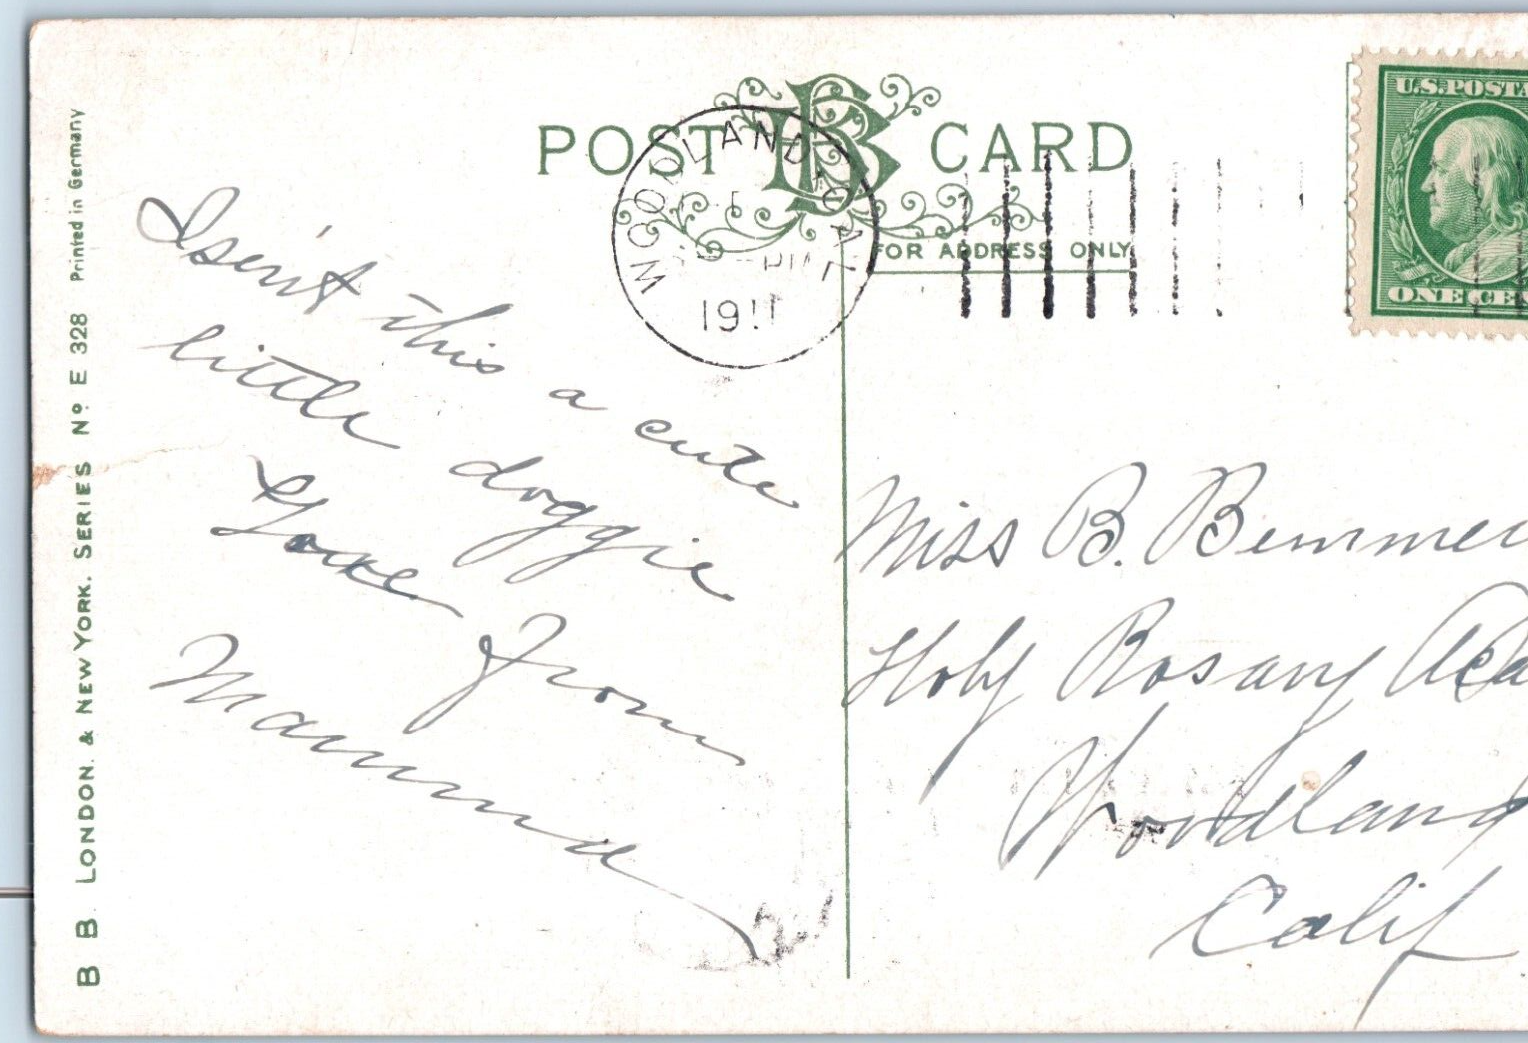 POST CARD
FOR ADDRESS ONLY
WOODLAND CAL
PM
1911
U.S. POSTA
ONE CE
Isen't this a cute
little doggie
Love from
Mamma
Miss B. Bemmer
Holy Rosary Aca
Woodland
Calif
B B LONDON. & NEW YORK. SERIES No E 328 Printed in Germany